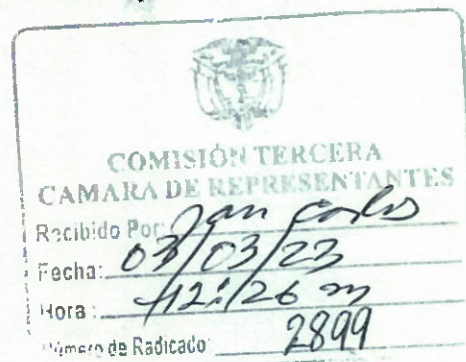 COMISIÓN TERCERA
CAMARA DE REPRESENTANTES
Recibido Por: Jan Carlos
Fecha: 03/03/23
Hora: 12:/26 m
Número de Radicado: 2899